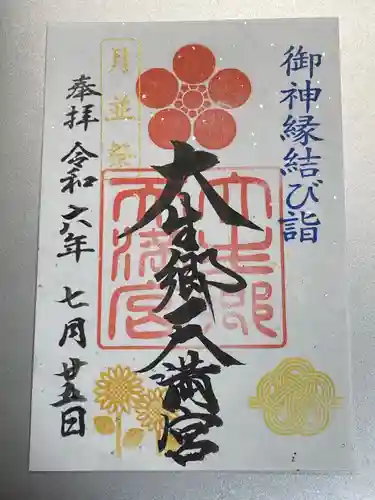 御神縁結び詣
大生郷天満宮
大生郷天満宮
月並祭
奉拝 令和六年 七月廿五日